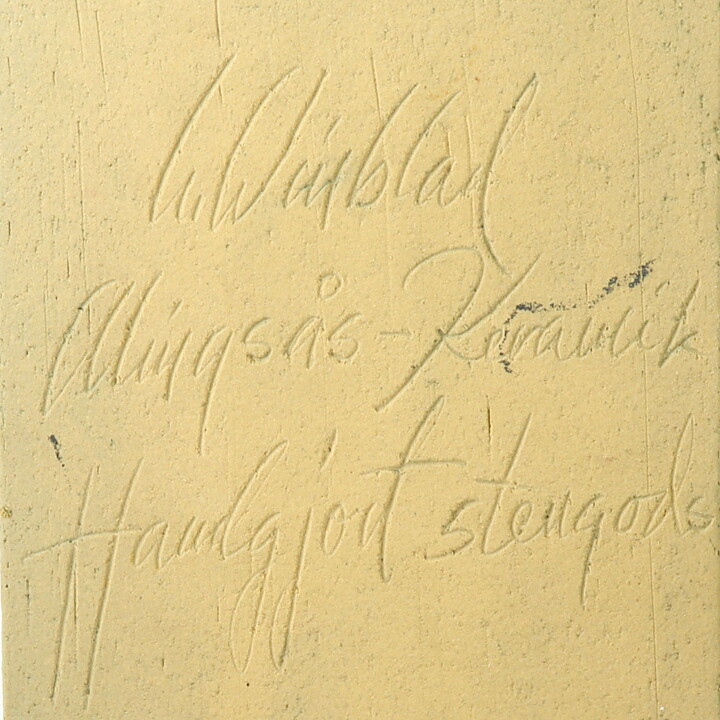 U. Winblad
Alingsås-Keramik
Handgjort stengods